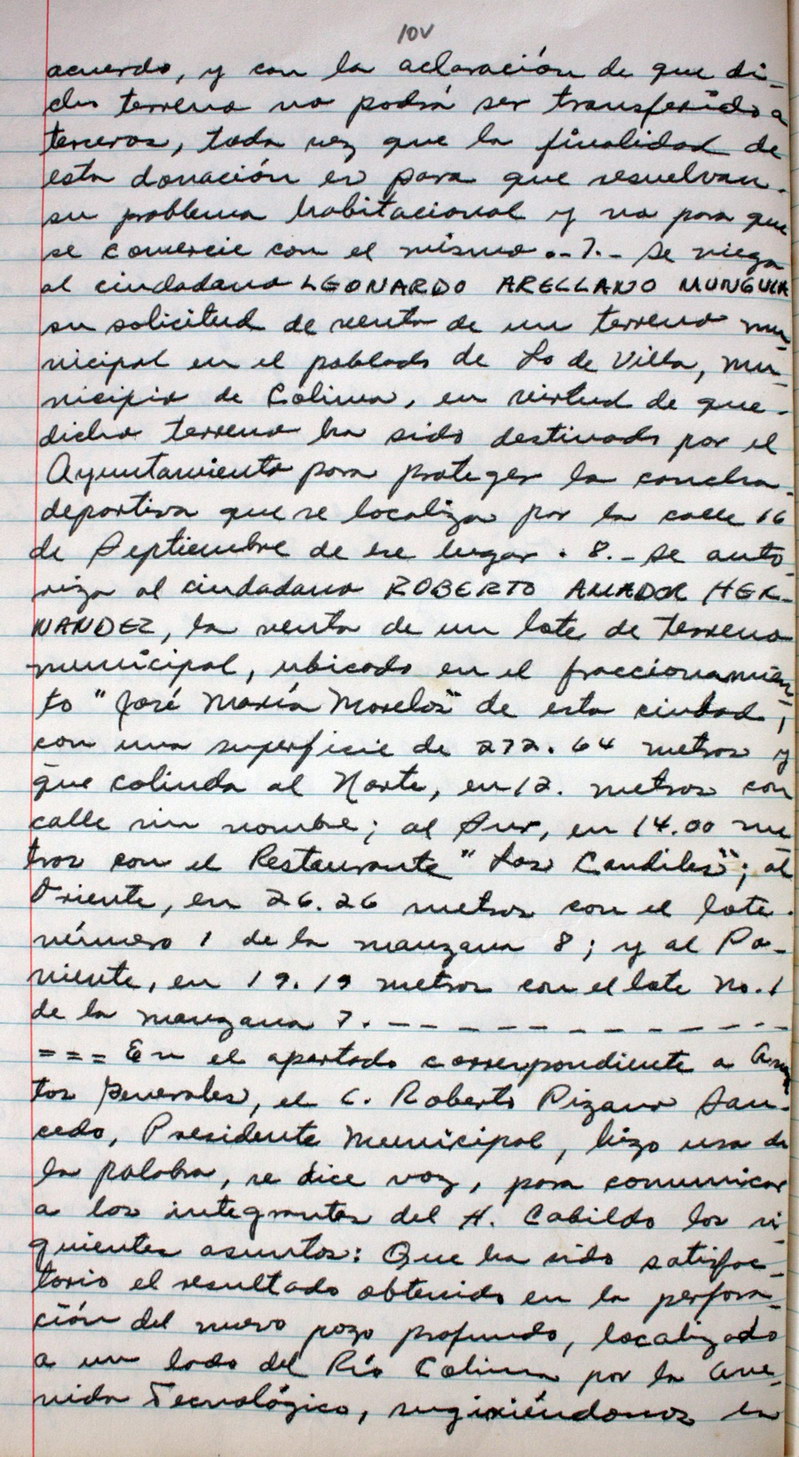 10v
acuerdo, y con la aclaración de que di-
cho terreno no podrá ser transferido a
terceros, toda vez que la finalidad de
esta donación es para que resuelvan
su problema habitacional y no para que
se comercie con el mismo.- 7.- Se niega
al ciudadano LEONARDO ARELLANO MUNGUIA
su solicitud de venta de un terreno mu-
nicipal en el poblado de Lo de Villa, mu-
nicipio de Colima, en virtud de que
dicho terreno ha sido destinado por el
Ayuntamiento para proteger la cancha
deportiva que se localiza por la calle 16
de Septiembre de ese lugar. 8.- Se auto-
riza al ciudadano ROBERTO AMADOR HER-
NANDEZ, la venta de un lote de terreno
municipal, ubicado en el fraccionamien-
to "José María Morelos" de esta ciudad,
con una superficie de 272.64 metros y
que colinda al Norte, en 12. metros con
calle sin nombre; al Sur, en 14.00 me-
tros con el Restaurante "Los Candiles"; al
Oriente, en 26.26 metros con el lote
número 1 de la manzana 8; y al Po-
niente, en 19.19 metros con el lote No. 1
de la manzana 7. - - - - - - - - - - - -
=== En el apartado correspondiente a Asun-
tos Generales, el C. Roberto Pizano Sau-
cedo, Presidente Municipal, hizo uso de
la palabra, se dice voz, para comunicar
a los integrantes del H. Cabildo los si-
guientes asuntos: Que ha sido satisfac-
torio el resultado obtenido en la perfora-
ción del nuevo pozo profundo, localizado
a un lado del Río Colima por la Ave-
nida Tecnológico, sugiriéndonos en